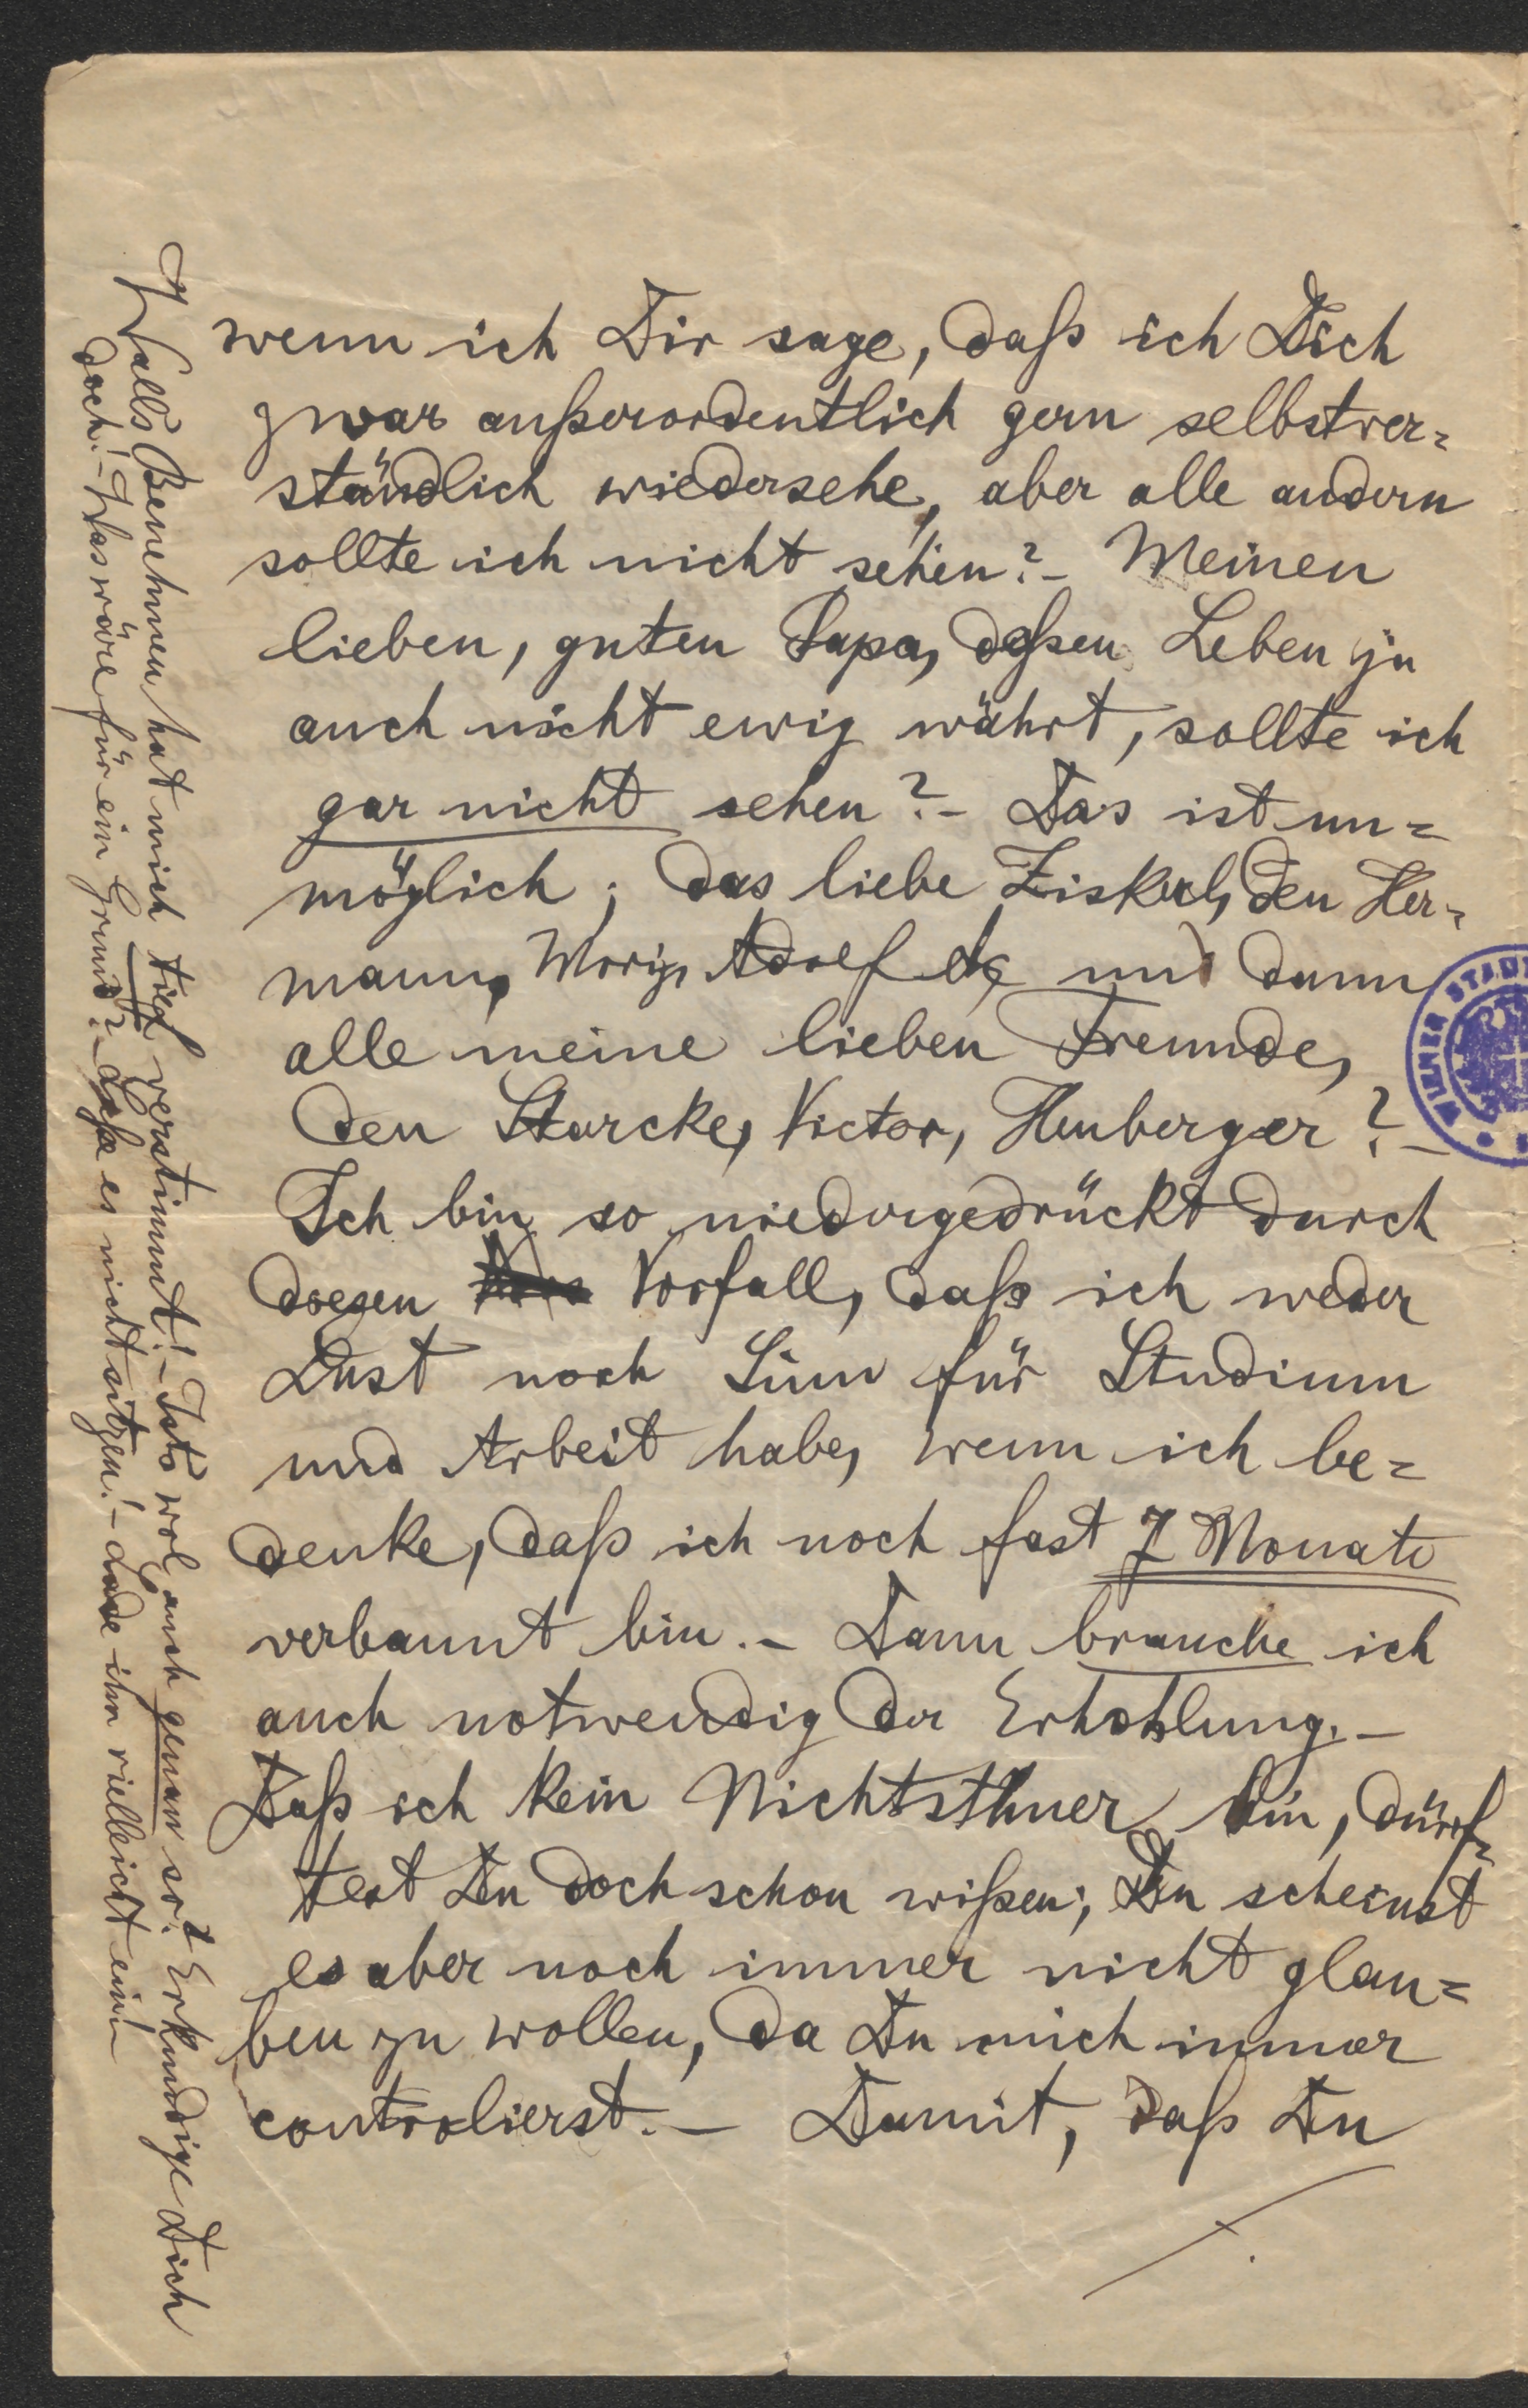 wenn ich Dir sage, daß ich Dich
zwar außerordentlich gern selbstver=
ständlich wiedersehe, aber alle andern
sollte ich nicht sehen? - Meinen
lieben, guten Papa, deßen Leben ja
auch nicht ewig währt, sollte ich
gar nicht sehen? - Das ist un=
möglich; das liebe Ziskerl, den Her=
mann, Moriz, Adolf etc und dann
alle meine lieben Freunde,
den Starcke, Victor, Heuberger? -
Ich bin so niedergedrückt durch
diesen Vorfall, daß ich weder
Lust noch Sinn für Studium
und Arbeit habe, wenn ich be=
denke, daß ich noch fast 7 Monate
verbannt bin. - Dann brauche ich
auch notwendig der Erhohlung. -
Daß ich kein Nichtsthuer bin, dürf=
test Du doch schon wißen; Du scheinst
es aber noch immer nicht glau=
ben zu wollen, da Du mich immer
controlierst. - Damit, daß Du
Walls Benehmen hat mich tief verstimmt! - Ists wol auch genau so? Erkundige Dich
doch! - Was wäre für ein Grund? - laße es nicht sitzen! - lade ihn vielleicht ein! -
WIENER STADT